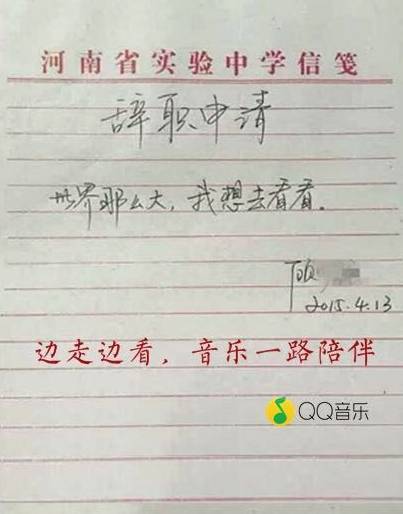 河南省实验中学信笺
辞职申请
世界那么大，我想去看看。
顾
2015.4.13
边走边看，音乐一路陪伴
QQ音乐